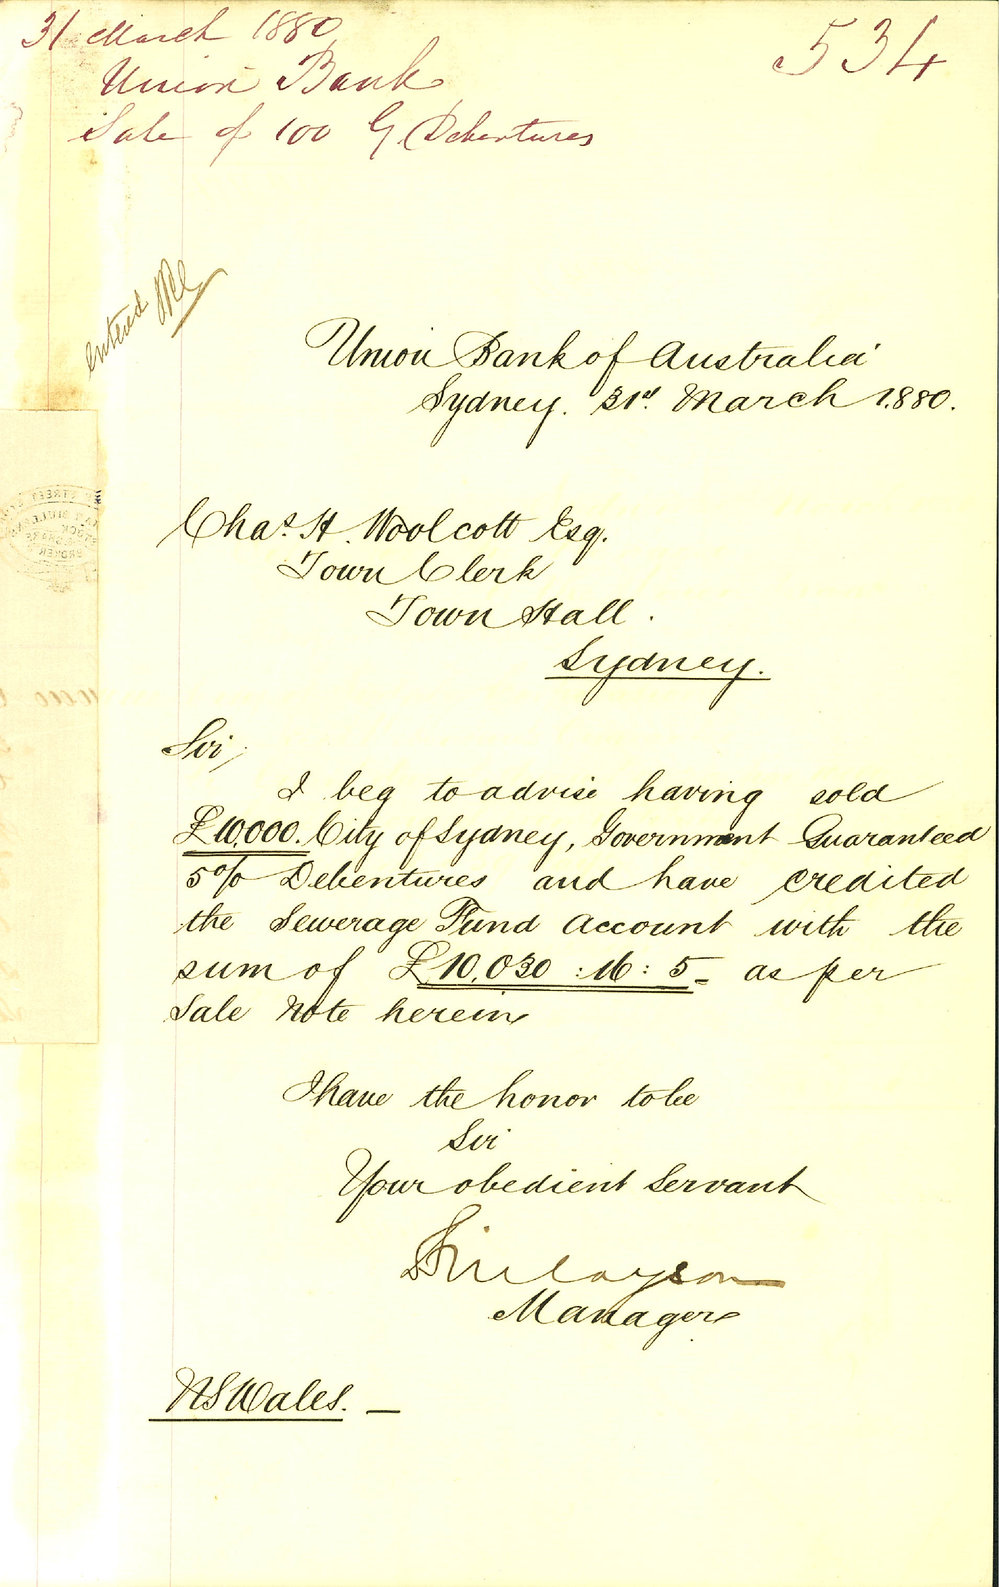 31 March 1880
534
Union Bank
Sale of 100 G Debentures
entered
Union Bank of Australia
Sydney. 31st. March 1880.
Chas. H. Woolcott Esq.
Town Clerk
Town Hall.
Sydney.
Sir,
I beg to advise having sold
£10,000. City of Sydney, Government Guaranteed
5% Debentures and have credited
the Sewerage Fund Account with the
sum of £10,030:16:5_ as per
Sale Note herein
I have the honor to be
Sir
Your obedient Servant
Finlayson
Manager
NSWales. _